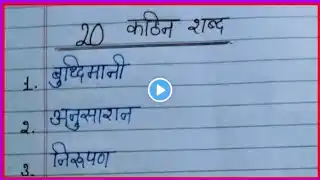 20 कठिन शब्द
1. बुध्दिमानी
2. अनुसारान
3. निरूपण